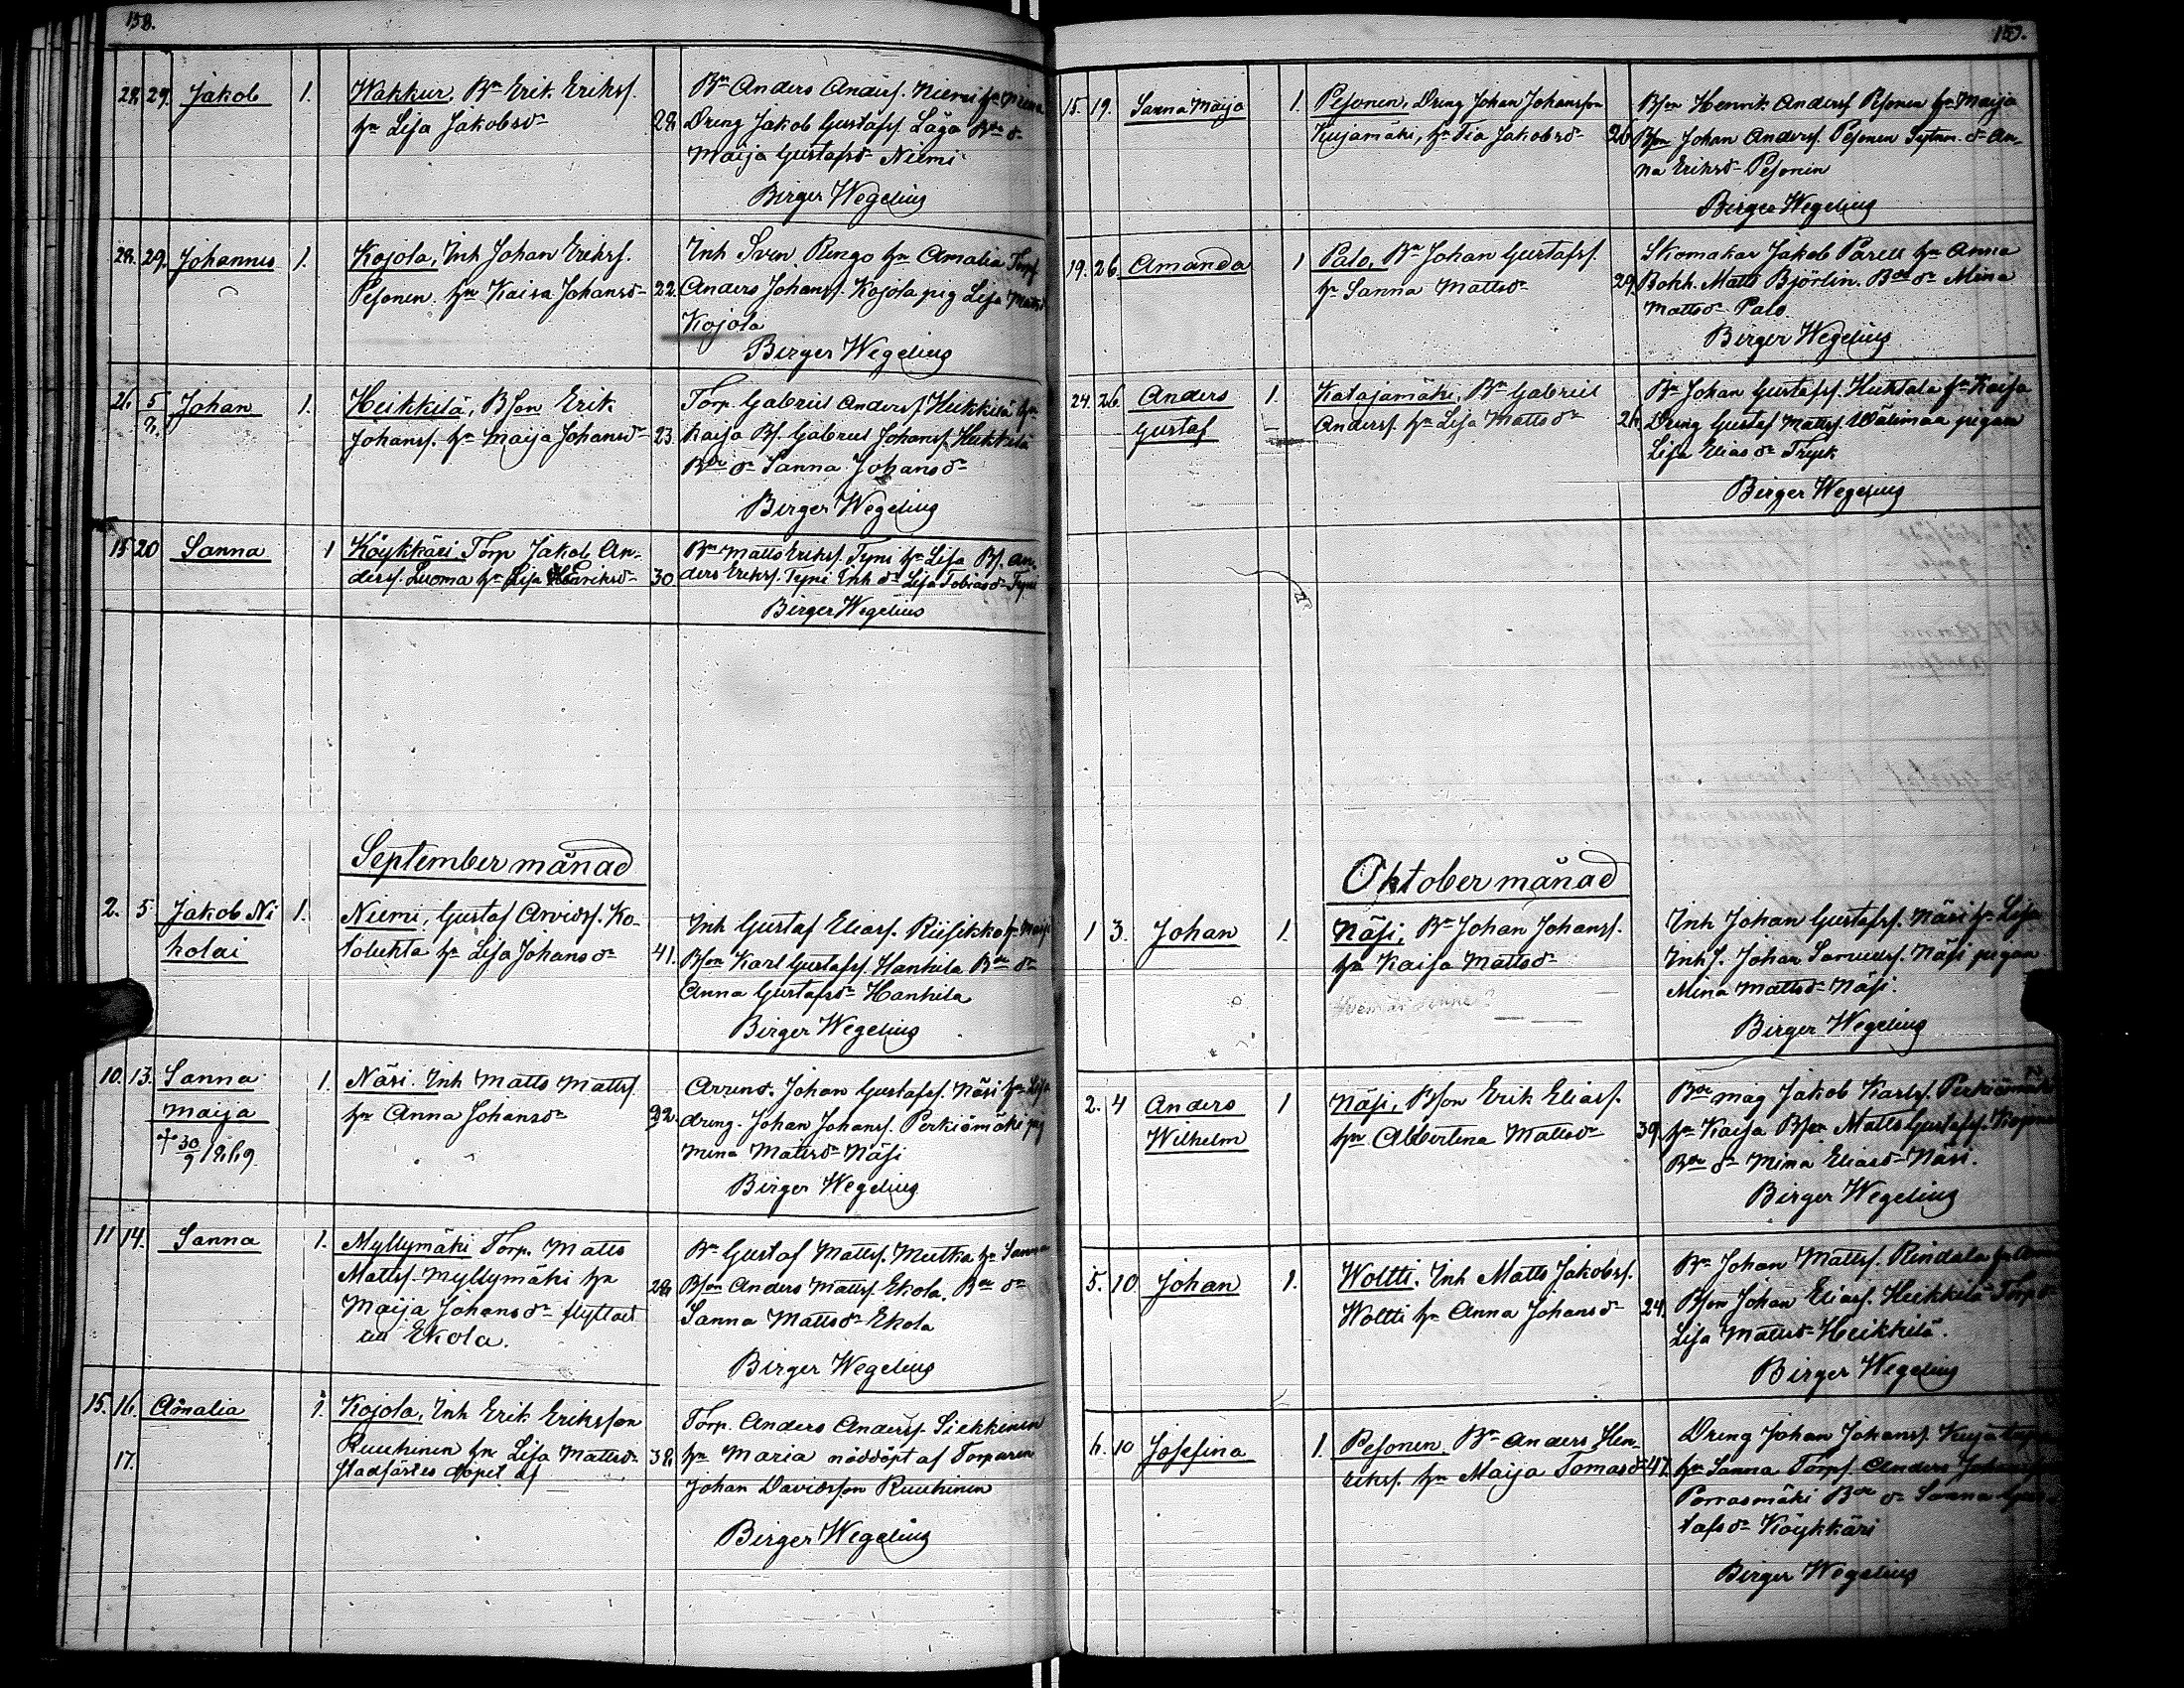 158.
28. 29. Jakob 1. Wakkur, Bn Erik Eriksf.
hu Lisa Jakobsdr 28
Bn Anders Andersf. Niemi hu Mina
Dreng Jakob Gustafsf. Låga Bde dr
Maija Gustafsdr Niemi
Birger Wegelius
28. 29. Johannes 1. Kojola, Inh Johan Eriksf.
Pesonen. hu Kaisa Johansdr 22.
Inh Sven Ringo hu Amalia Torpf
Anders Johansf. Kojola pig Lisa Mattsd
Kojola
Birger Wegelius
26. 5/8. Johan 1. Heikkilä, Bson Erik
Johansf. hu Maija Johansdr 23
Torp. Gabriel Andersf Heikkilä hu
Kaisa Bf. Gabriel Johansf. Heikkilä
Bde dr Sanna Johansdr
Birger Wegelius
15 20 Sanna 1 Köykkäri Torp Jakob An-
dersf. Luoma hu Lisa Henriksdr 30
Bn Matts Eriksf. Tyni hu Lisa Bf. An-
ders Eriksf. Tyni Inh dr Lisa Tobiasdr Tyni
Birger Wegelius
September månad
2. 5 Jakob Ni 1. Niemi, Gustaf Arvidsf. Ko-
kolai
toluhta hu Lisa Johansdr 41.
Inh Gustaf Eliasf. Riisikko hu Maija
Bson Karl Gustafsf. Hankila Bde dr
Anna Gustafsdr Hankila
Birger Wegelius
10. 13. Sanna 1. Näsi. Inh Matts Mattsf.
Maija
hu Anna Johansdr 32.
† 30/9 1869
Arrend. Johan Gustafsf. Näsi hu Lisa
dreng. Johan Johansf. Perkiömäki pig
Mina Mattsdr Näsi
Birger Wegelius
11 14. Sanna 1. Myllymäki Torp. Matts
Mattsf. Myllymäki hu 28
Maija Johansdr flyttat
till Ekola.
Bn Gustaf Mattsf. Mutka hu Sanna
Bson Anders Mattsf. Ekola. Bde dr
Sanna Mattsdr Ekola
Birger Wegelius
15. 16. Amalia 1. Kojola, Inh Erik Eriksson
17. Ruuhinen hu Lisa Mattsdr 38
stadfästes dopet af
Torp. Anders Andersf. Siekkinen
hu Maria nöddöpt af Torparen
Johan Davidsson Ruuhinen
Birger Wegelius
15. 19. Sanna Maija 1. Pesonen, Dreng Johan Johansson
Kujamäki, hu Fia Jakobsdr 26
Bson Henrik Andersf Pesonen hu Maija
Bson Johan Andersf. Pesonen dr An-
na Eriksdr Pesonen
Birger Wegelius
19. 26. Amanda 1 Palo, Bn Johan Gustafsf.
hu Sanna Mattsdr 29.
Skomakar Jakob Parell hu Anna
Bokh. Matts Björlin. Bde dr Mina
Mattsdr Palo
Birger Wegelius
24. 26. Anders 1. Katajamäki, Bn Gabriel
Gustaf
Andersf. hu Lisa Mattsdr 26
Bn Johan Gustafsf. Huhtala hu Kaisa
Dreng Gustaf Mattsf. Wälimaa pigan
Lisa Eliasdr Tryck
Birger Wegelius
Oktober månad
1 3. Johan 1. Näsi, Bn Johan Johansf.
hu Kaisa Mattsdr
Inh Johan Gustafsf. Näsi hu Lisa
Inhf. Johan Samuelsf. Näsi pigan
Mina Mattsdr Näsi.
Birger Wegelius
2. 4 Anders 1 Näsi, Bson Erik Eliasf.
Wilhelm
hu Albertina Mattsdr 39.
Bde mag Jakob Karlsf. Perkiömäki
hu Kaisa Bson Matts Gustafsf.
Bde dr Mina Eliasdr Näsi.
Birger Wegelius
5. 10. Johan 1. Woltti. Inh Matts Jakobsf.
Woltti hu Anna Johansdr 24.
Bn Johan Mattsf. Rindala hu
Bson Johan Eliasf. Heikkilä Torp dr
Lisa Mattsdr Heikkilä.
Birger Wegelius
6. 10 Josefina 1. Pesonen, Bn Anders Hen-
riksf. hu Maija Tomasdr 47.
Dreng Johan Johansf.
hu Sanna Torpf. Anders
Porrasmäki Bde dr Sanna Gus-
tafsdr Köykkäri
Birger Wegelius